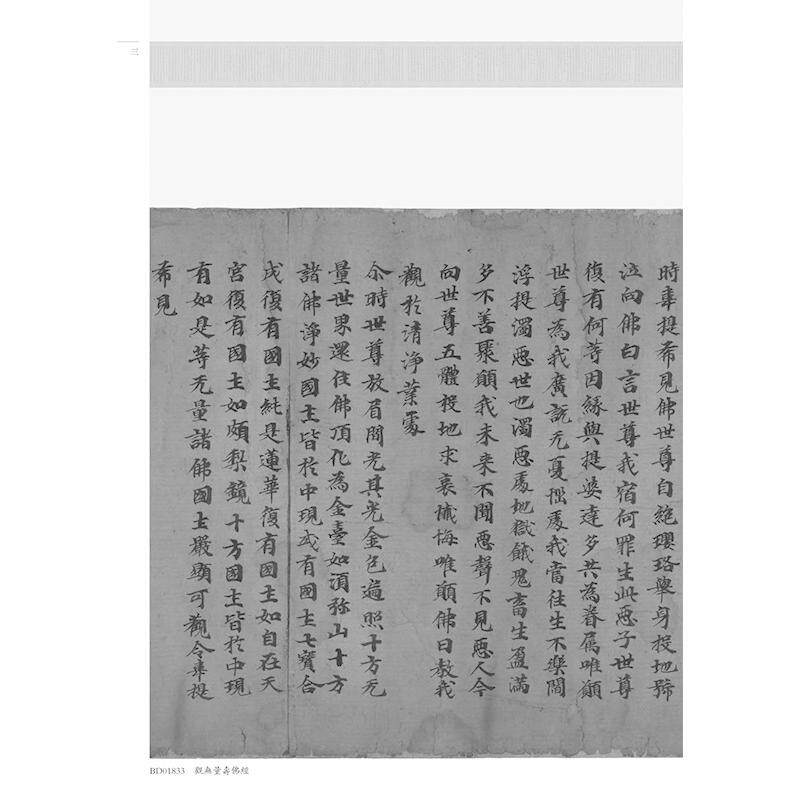 三
時韋提希見佛世尊自絕瓔珞舉身投地號
泣向佛白言世尊我宿何罪生此惡子世尊
復有何等因緣與提婆達多共為眷属唯願
世尊為我廣說无憂惱處我當往生不樂閻
浮提濁惡世也濁惡處地獄餓鬼畜生盈滿
多不善聚願我未来不聞惡聲不見惡人今
向世尊五體投地求哀懴悔唯願佛日教我
觀於清淨業處
尒時世尊放眉間光其光金色遍照十方无
量世界還住佛頂化為金臺如湏弥山十方
諸佛淨妙國土皆於中現或有國土七寶合
成復有國土純是蓮華復有國土如自在天
宮復有國土如頗梨鏡十方國土皆於中現
有如是等无量諸佛國土嚴顯可觀令韋提
希見
BD01833 觀無量壽佛經